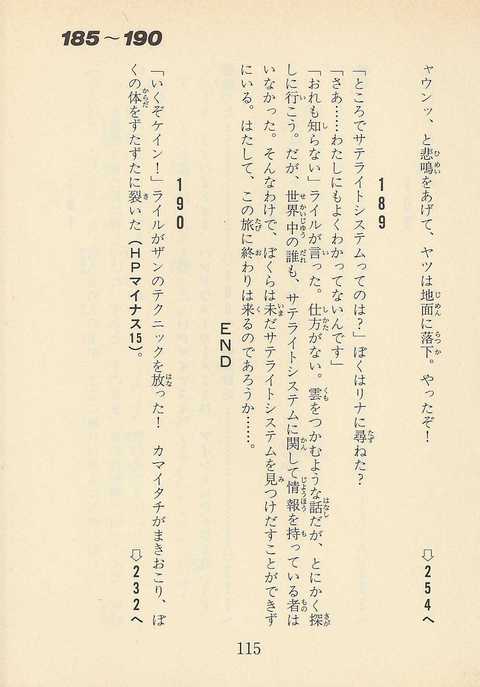 185～190
ャウンッ、と悲鳴をあげて、ヤツは地面に落下。やったぞ！
⇩254へ
189
「ところでサテライトシステムってのは？」ぼくはリナに尋ねた？
「さあ……わたしにもよくわかってないんです」
「おれも知らない」ライルが言った。仕方がない。雲をつかむような話だが、とにかく探
しに行こう。だが、世界中の誰も、サテライトシステムに関して情報を持っている者は
いなかった。そんなわけで、ぼくらは未だサテライトシステムを見つけだすことができず
にいる。はたして、この旅に終わりは来るのであろうか……。
END
190
「いくぞケイン！」ライルがザンのテクニックを放った！　カマイタチがまきおこり、ぼ
くの体をずたずたに裂いた（HPマイナス15）。
⇩232へ
115